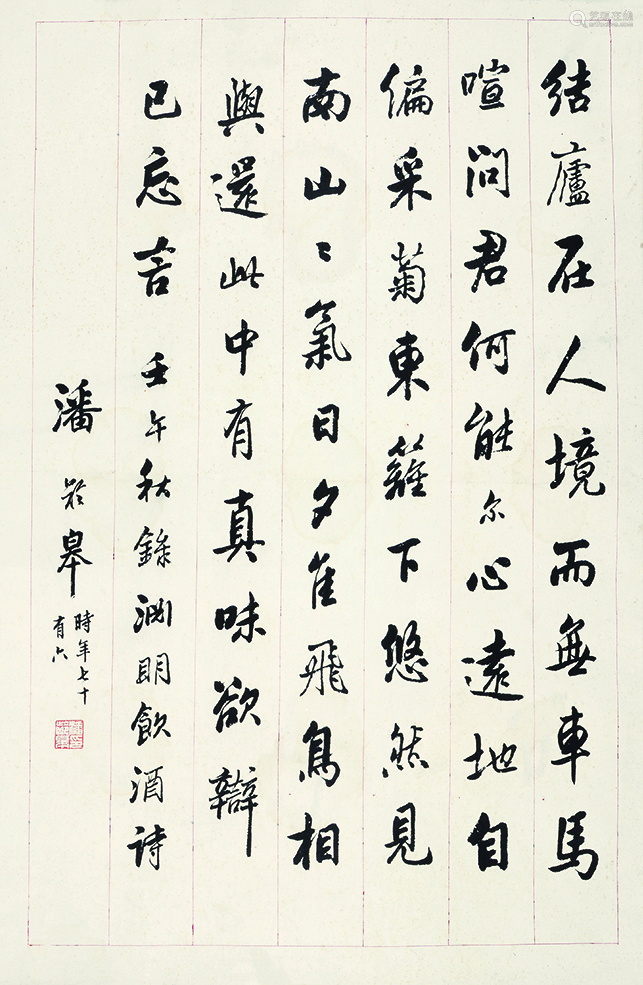 結廬在人境而無車馬
喧問君何能尔心遠地自
偏采菊東籬下悠然見
南山〻氣日夕佳飛鳥相
與還此中有真味欲辯
已忘言 壬午秋錄淵明飲酒詩
潘齡皋
時年七十
有六